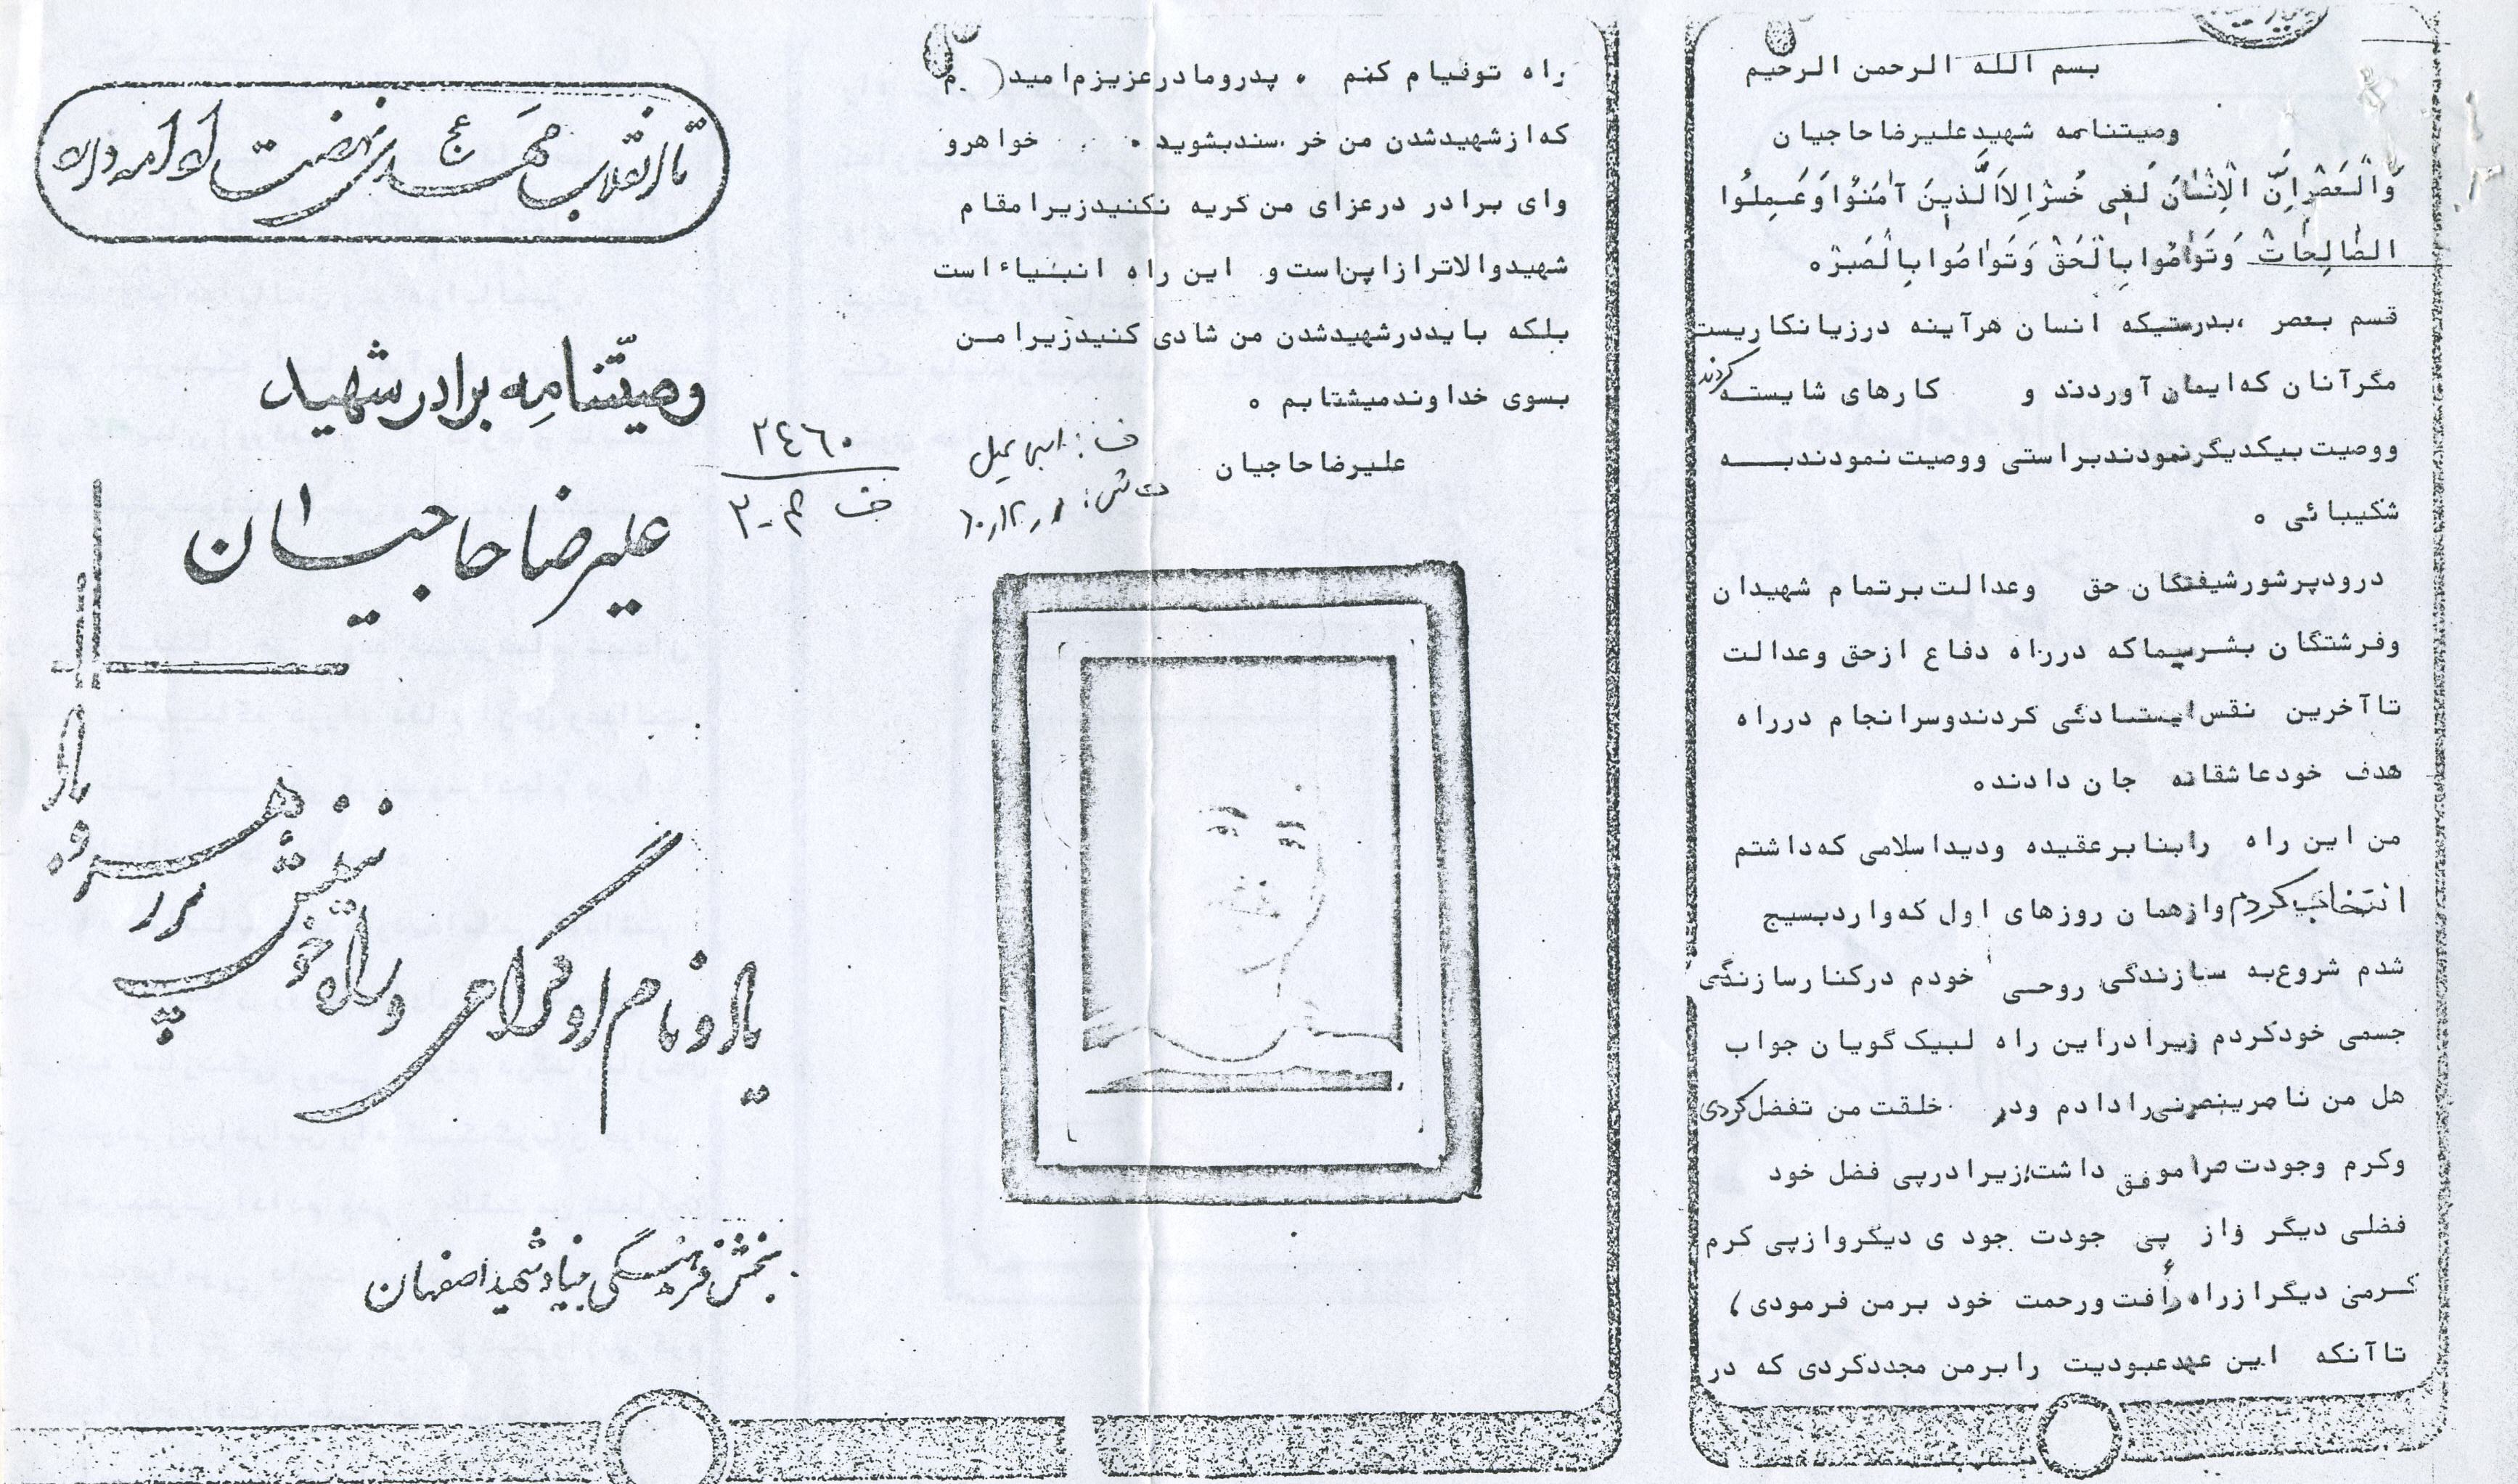 بسم الله الرحمن الرحیم
وصیتنامه شهید علیرضا حاجیان
وَالْعَصْرِ اِنَّ الْاِنْسَانَ لَفِی خُسْرْ اِلاَالَّذینَ آمَنُوْا وَعَمِلُوا
الصَّالِحَاتْ وَتَوَاصُوا بِالْحَقْ وَتَوَاصُوا بِالْصَبرْ ه
قسم بعصر ،بدرستیکه انسان هرآینه در زیانکاریست
مگر آنان که ایمان آوردند و کارهای شایسته کردند
و وصیت بیکدیگر نمودند براستی و وصیت نمودند به
شکیبائی ه
درود پرشور شیفتگان حق وعدالت بر تمام شهیدان
وفرشتگان بشر سیماکه در راه دفاع از حق وعدالت
تا آخرین نقس ایستادگی کردند و سرانجام در راه
هدف خود عاشقانه جان دادنده
من این راه را بنا بر عقیده ودید اسلامی که داشتم
انتخاب کردم و از همان روزهای اول که وارد بسیج
شدم شروع به سازندگی روحی خودم در کنار سازندگی
جسمی خود کردم زیرا در این راه لبیک گویان جواب
هل من ناصر ینصرنی را دادم و در خلقت من تفضل کردی
وکرم وجودت مرا موفق داشت زیرا در پی فضل خود
فضلی دیگر واز پی جودت جود ی دیگر واز پی کرم
کرمی دیگر از راه رأفت و رحمت خود بر من فرمودی ،
تا آنکه این عهد عبودیت را بر من مجدد کردی که در
راه تو قیام کنم ه پدر و مادر عزیزم امید
که از شهید شدن من خرسند بشوید ه خواهر و
وای برادر در عزای من گریه نکنید زیرا مقام
شهید والاتر از این است و این راه انبیاء است
بلکه باید در شهید شدن من شادی کنید زیرا من
بسوی خداوند میشتابم ه
علیرضا حاجیان
ف :
ت ش :
۲٤٦۰
تا انقلاب مهدی عج نهضت ادامه دارد
وصیّتنامه برادر شهید
علیرضا حاجیان
یاد و نام او گرامی و راه خونینش پر رهرو باد
بخش فرهنگی بنیاد شهید اصفهان